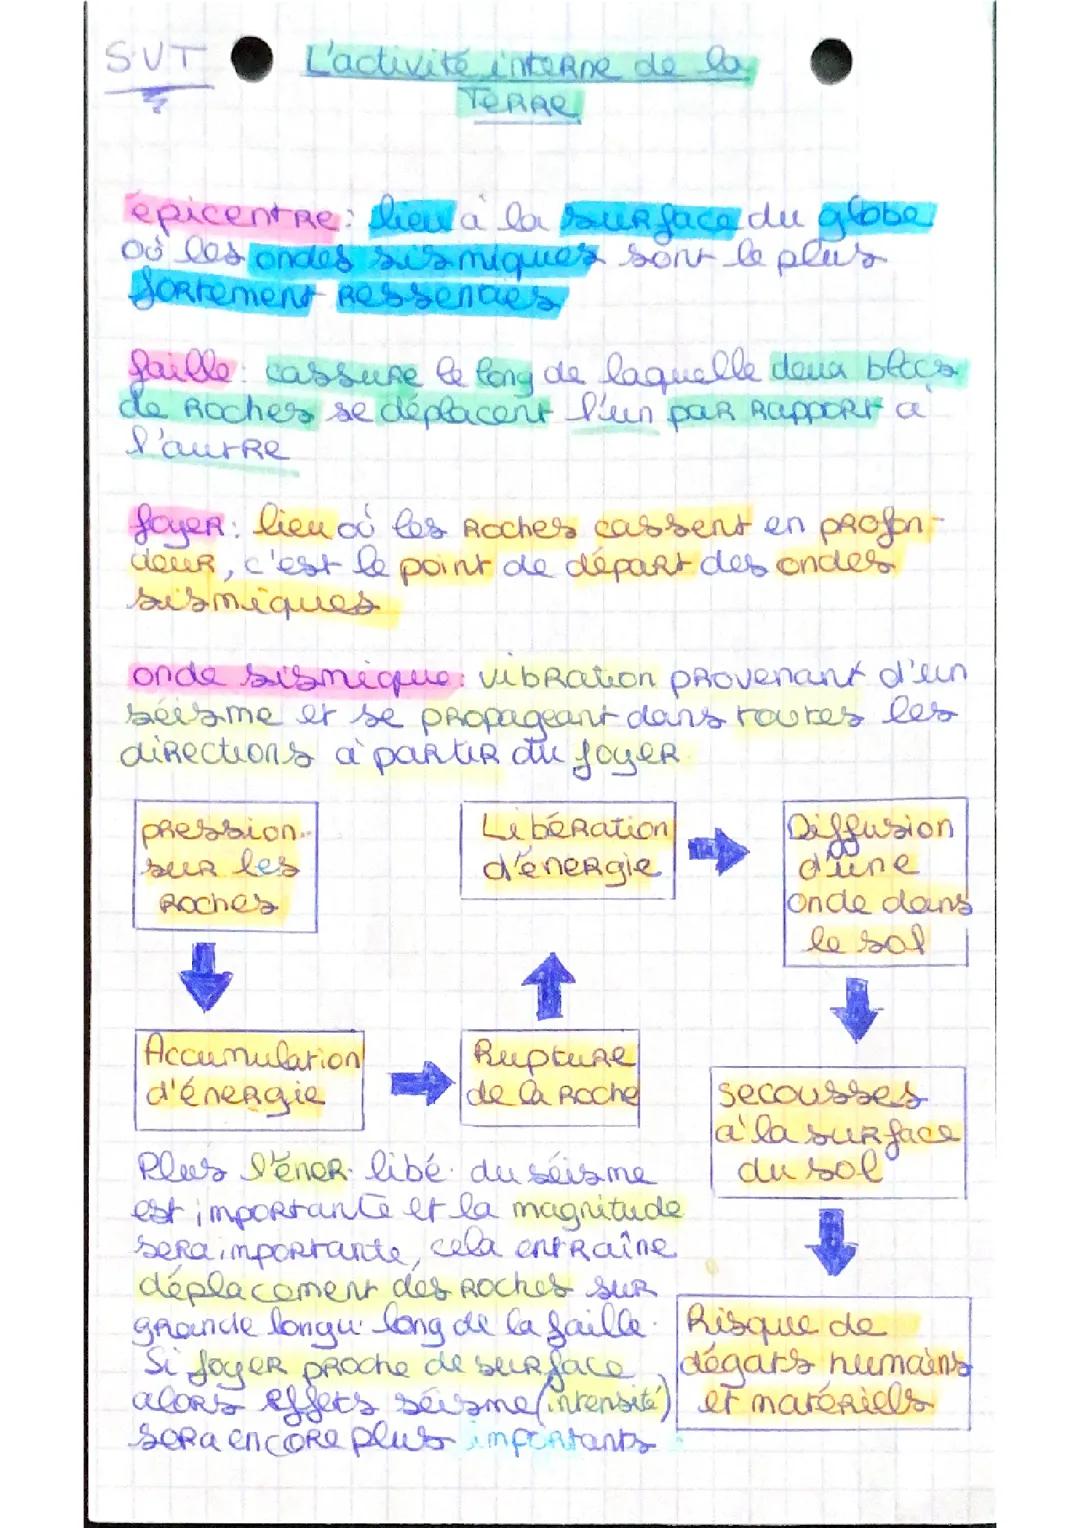 SVT
L'activité interne de la
Terre
épicentre: lieu à la surface du globe
où les ondes sismiques sont le plus
fortement ressenties
faille: cassure le long de laquelle deux blocs
de Roches se déplacent l'un par rapport à
l'autre
foyer: lieu où les Roches cassent en profon-
deur, c'est le point de départ des ondes
sismiques
onde sismique: vibration provenant d'un
séisme et se propageant dans toutes les
directions à partir du foyer
pression
sur les
Roches
Libération
d'énergie
Diffusion
d'une
onde dans
le sol
Accumulation
d'énergie
Rupture
de la Roche
secousses
à la surface
du sol
Plus l'éner. libé. du séisme
est importante et la magnitude
sera importante, cela entraîne
déplacement des Roches sur
grande longu. long de la faille.
Si foyer proche de surface
alors effets séisme (intensité)
sera encore plus importants
Risque de
dégats humains
et matériels